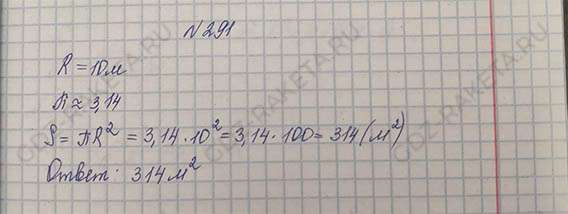 N 291
R = 10м
π ≈ 3,14
S = πR² = 3,14 · 10² = 3,14 · 100 = 314 (м²)
Ответ: 314 м²
GDZ-RAKETA.RU
GDZ-RAKETA.RU
GDZ-RAKETA.RU